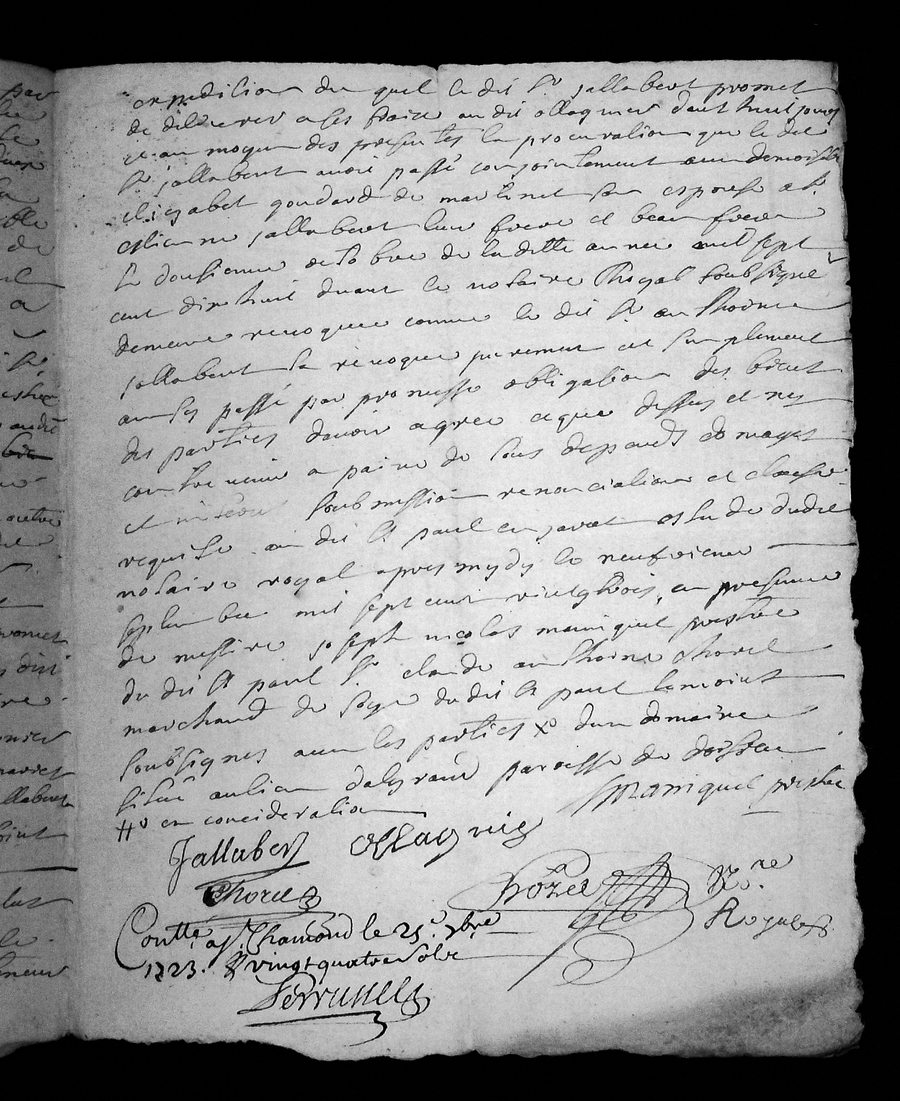 expedition du quel le dit Sr jallabert promet
de delivrer a ses fraix au dit ollagnier dans huit jours
et au moyen des presentes la procuration que le dit
Sr jallabert avoit passé conjointement avec demoiselle
elizabet goudard de martinet son espouse a Sr
estienne jallabert leur frere et beau frere
le dousieme octobre de la ditte année mil sept
cent dix huit devant le notaire Royal soubsigné
demeure revoquée comme le dit Sr anthoine
jallabert la revoque purement et simplement
ainsy passé par promesse obligation des biens
des parties davoir agreé ce que dessus et ny
contrevenir a paine de tous depends domages
et soubmission renonciation et clauses
requises au dit St paul en jarat estude dudit
notaire royal apres mydy le neufvieme
septembre mil sept cent vingt trois, en presence
de messire joseph nicolas maniquet prestre
du dit St paul Sr claude anthoine thorel
marchand de soye du dit St paul temoins
soubsignes avec les parties Xo dun domaine
situé au lieu paroisse de doizieu
##o en concideration Maniquet prestre
Jallabert Ollagnier
Thorel Nre
Royal
Contlé a St Chamond le 23e. 7bre
1723. R vingt quatre sols